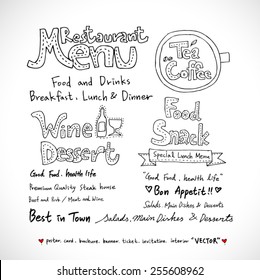 Restaurant
Menu
Tea
Coffee
Food and Drinks
Breakfast, Lunch & Dinner
Food
Snack
Wine
Dessert
Special Lunch Menu
Good Food, health life
"Good Food, health life"
Premium Quality Steak house
Bon Appetit!!
Beef and Pork / Meat and Wine
Salads, Main Dishes & Desserts
Best in Town
Salads, Main Dishes & Desserts
poster, card, brochure, banner, ticket, invitation, interior "VECTOR"
shutterstock.com · 255608962